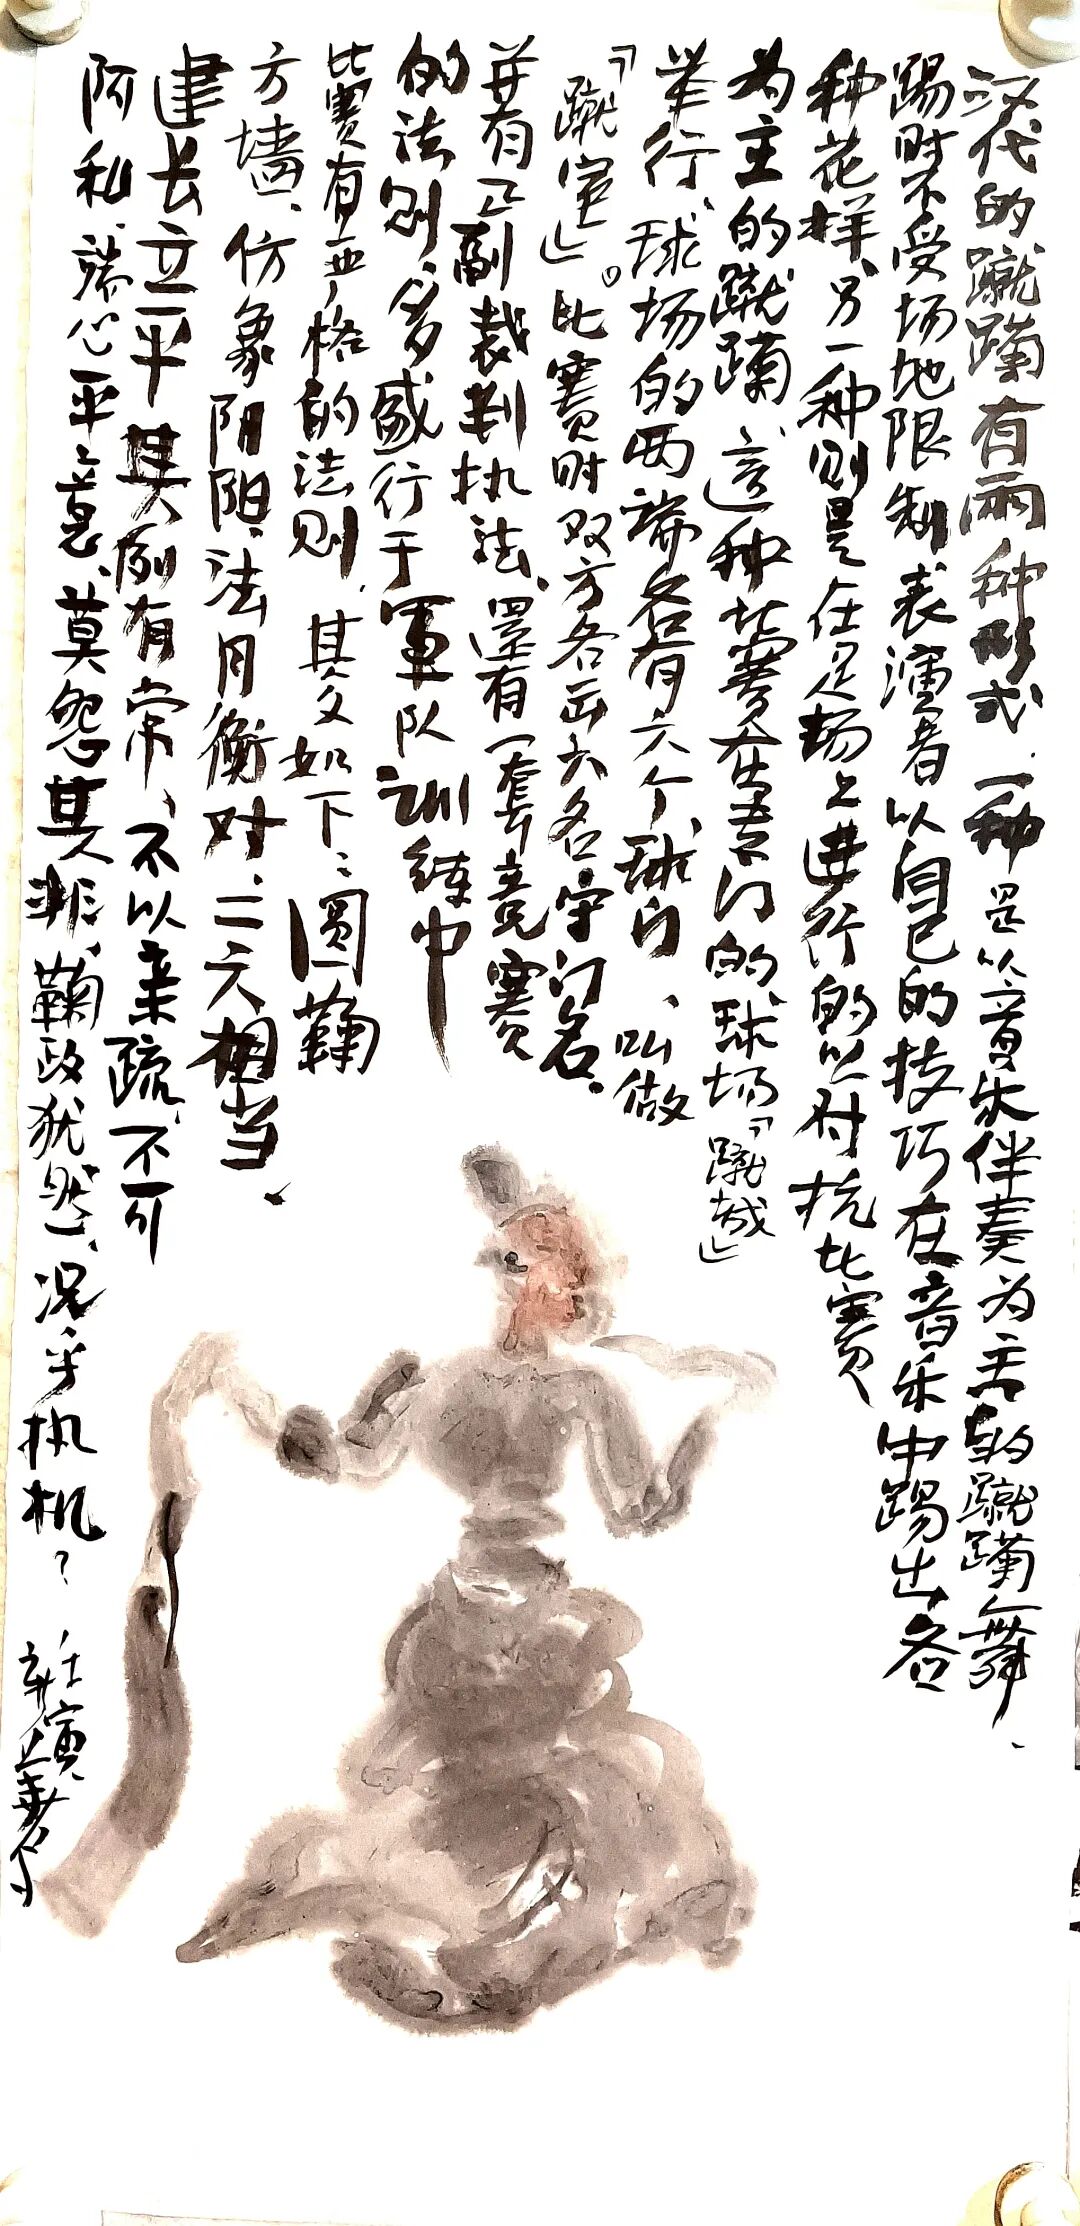 汉代的蹴踘有兩种形式、一种是以音乐伴奏为主的蹴踘舞、
踢时不受场地限制表演者以自己的技巧在音乐中踢出各
种花样、另一种则是在足场上进行的以对抗比赛
为主的蹴踘、这种比赛在专门的球场「蹴城」
举行、球场的两端各有六个球门、叫做
「蹴室」。比赛时双方各出六名守门名.
并有正副裁判执法、還有一套竞赛
的法则、多盛行于军队训练中
比赛有严格的法则、其文如下:圆鞠
方墙、仿象阴阳、法月衡对、二六相当、
建长立平其例有常、不以亲疏、不可
阿私、端心平意、莫怨其非、鞠政犹然、况乎执机?